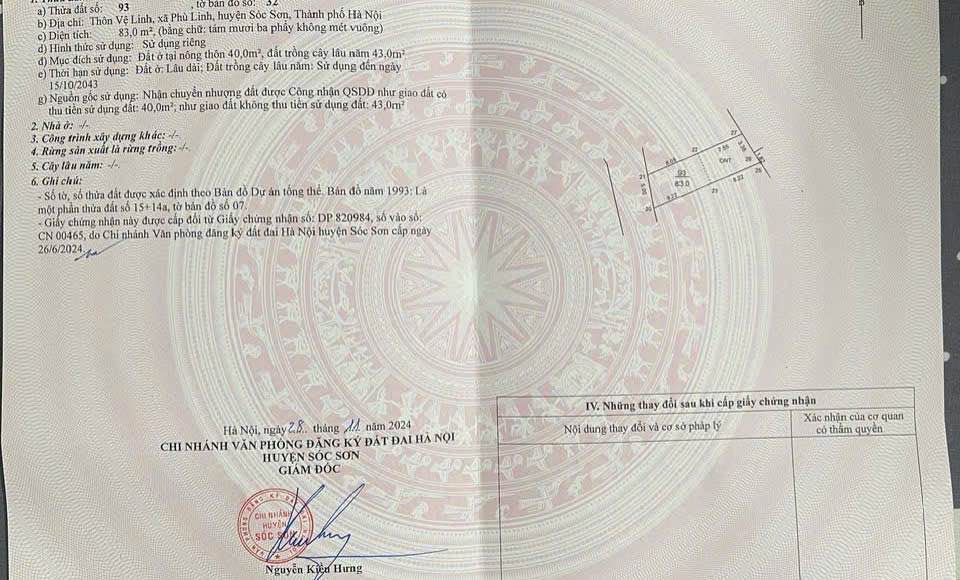 a) Thửa đất số: 93 , tờ bản đồ số: 32
b) Địa chỉ: Thôn Vệ Linh, xã Phù Linh, huyện Sóc Sơn, Thành phố Hà Nội
c) Diện tích: 83,0 m², (bằng chữ: tám mươi ba phẩy không mét vuông)
d) Hình thức sử dụng: Sử dụng riêng
đ) Mục đích sử dụng: Đất ở tại nông thôn 40,0m², đất trồng cây lâu năm 43,0m²
e) Thời hạn sử dụng: Đất ở: Lâu dài; Đất trồng cây lâu năm: Sử dụng đến ngày
15/10/2043
g) Nguồn gốc sử dụng: Nhận chuyển nhượng đất được Công nhận QSDĐ như giao đất có
thu tiền sử dụng đất: 40,0m²; như giao đất không thu tiền sử dụng đất: 43,0m²
2. Nhà ở: -/-
3. Công trình xây dựng khác: -/-
4. Rừng sản xuất là rừng trồng: -/-
5. Cây lâu năm: -/-
6. Ghi chú:
- Số tờ, số thửa đất được xác định theo Bản đồ Dự án tổng thể. Bản đồ năm 1993: Là
một phần thửa đất số 15+14a, tờ bản đồ số 07.
- Giấy chứng nhận này được cấp đổi từ Giấy chứng nhận số: DP 820984, số vào sổ:
CN 00465, do Chi nhánh Văn phòng đăng ký đất đai Hà Nội huyện Sóc Sơn cấp ngày
26/6/2024.
27
22
7.55
3.36
ONT
28
26
21
93
83.0
5.00
20
9.22
23
9.22
25
IV. Những thay đổi sau khi cấp giấy chứng nhận
Nội dung thay đổi và cơ sở pháp lý
Xác nhận của cơ quan
có thẩm quyền
Hà Nội, ngày 28 tháng 11 năm 2024
CHI NHÁNH VĂN PHÒNG ĐĂNG KÝ ĐẤT ĐAI HÀ NỘI
HUYỆN SÓC SƠN
GIÁM ĐỐC
CHI NHÁNH
HUYỆN
SÓC SƠN
Nguyễn Kiều Hưng